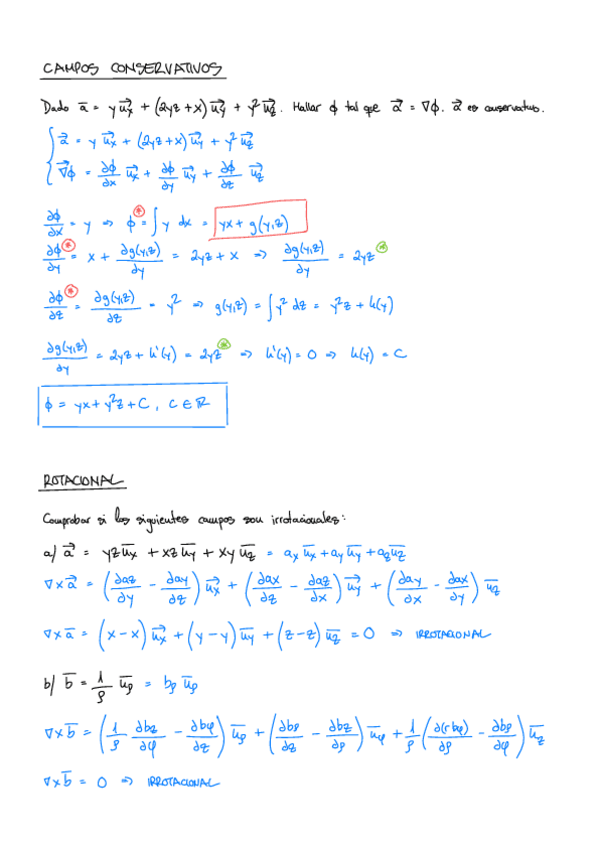 CAMPOS CONSERVATIVOS
Dado a⃗ = y u⃗x + (2yz+x) u⃗y + y² u⃗z. Hallar ϕ tal que a⃗ = ∇ϕ. a⃗ es conservativo.
{ a⃗ = y u⃗x + (2yz+x) u⃗y + y² u⃗z
∇⃗ϕ = ∂ϕ/∂x u⃗x + ∂ϕ/∂y u⃗y + ∂ϕ/∂z u⃗z
∂ϕ/∂x = y ⇒ ϕ^(*) = ∫ y dx = yx + g(y,z)
∂ϕ^(*)/∂y = x + ∂g(y,z)/∂y = 2yz + x ⇒ ∂g(y,z)/∂y = 2yz^(*)
∂ϕ^(*)/∂z = ∂g(y,z)/∂z = y² ⇒ g(y,z) = ∫ y² dz = y²z + h(y)
∂g(y,z)/∂y = 2yz + h'(y) = 2yz^(*) ⇒ h'(y) = 0 ⇒ h(y) = C
ϕ = yx + y²z + C, C ∈ ℝ
ROTACIONAL
Comprobar si los siguientes campos son irrotacionales:
a/ a⃗ = yz u̅x + xz u̅y + xy u̅z = ax u̅x + ay u̅y + az u̅z
∇×a⃗ = (∂az/∂y - ∂ay/∂z) u⃗x + (∂ax/∂z - ∂az/∂x) u⃗y + (∂ay/∂x - ∂ax/∂y) u̅z
∇×a̅ = (x-x) u⃗x + (y-y) u̅y + (z-z) u̅z = 0 ⇒ IRROTACIONAL
b/ b̅ = 1/ρ u̅ρ = bρ u̅ρ
∇×b̅ = (1/ρ ∂bz/∂φ - ∂bφ/∂z) u̅ρ + (∂bρ/∂z - ∂bz/∂ρ) u̅φ + 1/ρ (∂(rbφ)/∂ρ - ∂bρ/∂φ) u̅z
∇×b̅ = 0 ⇒ IRROTACIONAL